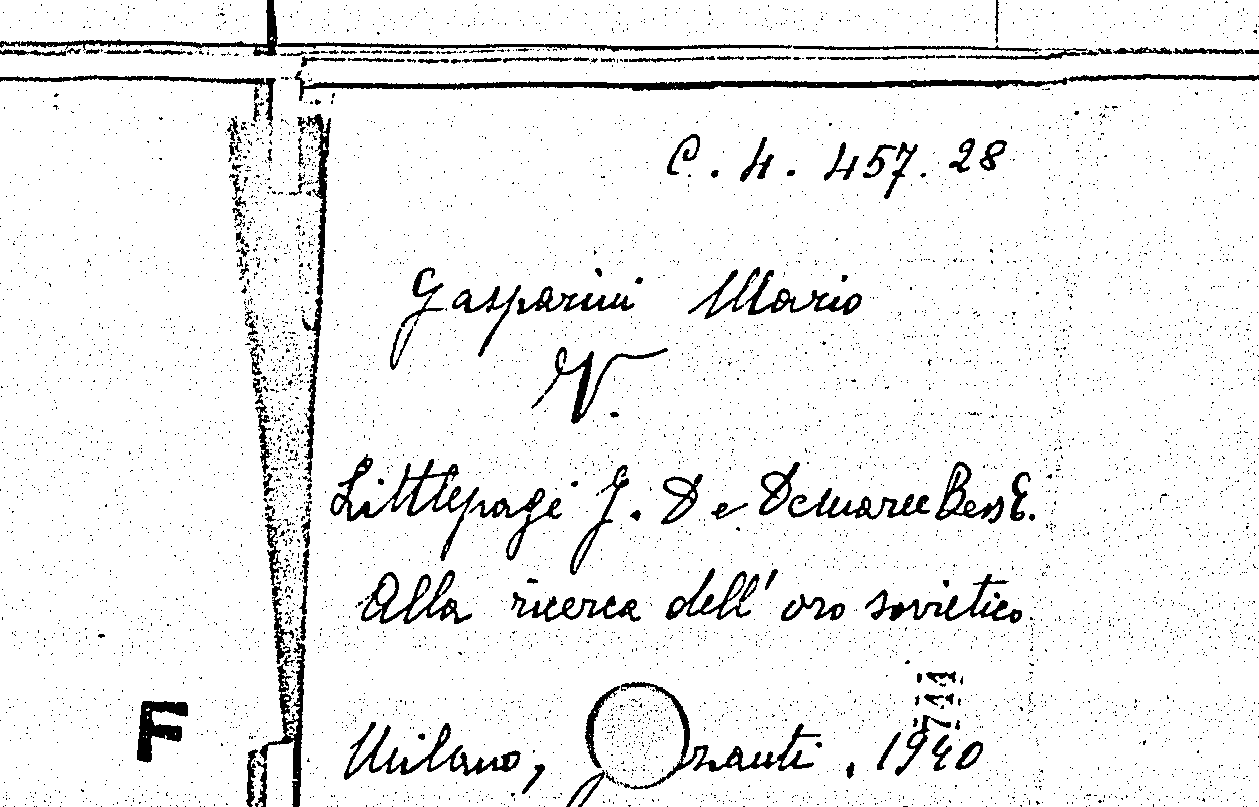 C. 4. 457. 28
Gasparini Mario
V.
Littlepage J. D e Demaree Bess E.
Alla ricerca dell' oro sovietico
F
Milano, 1940